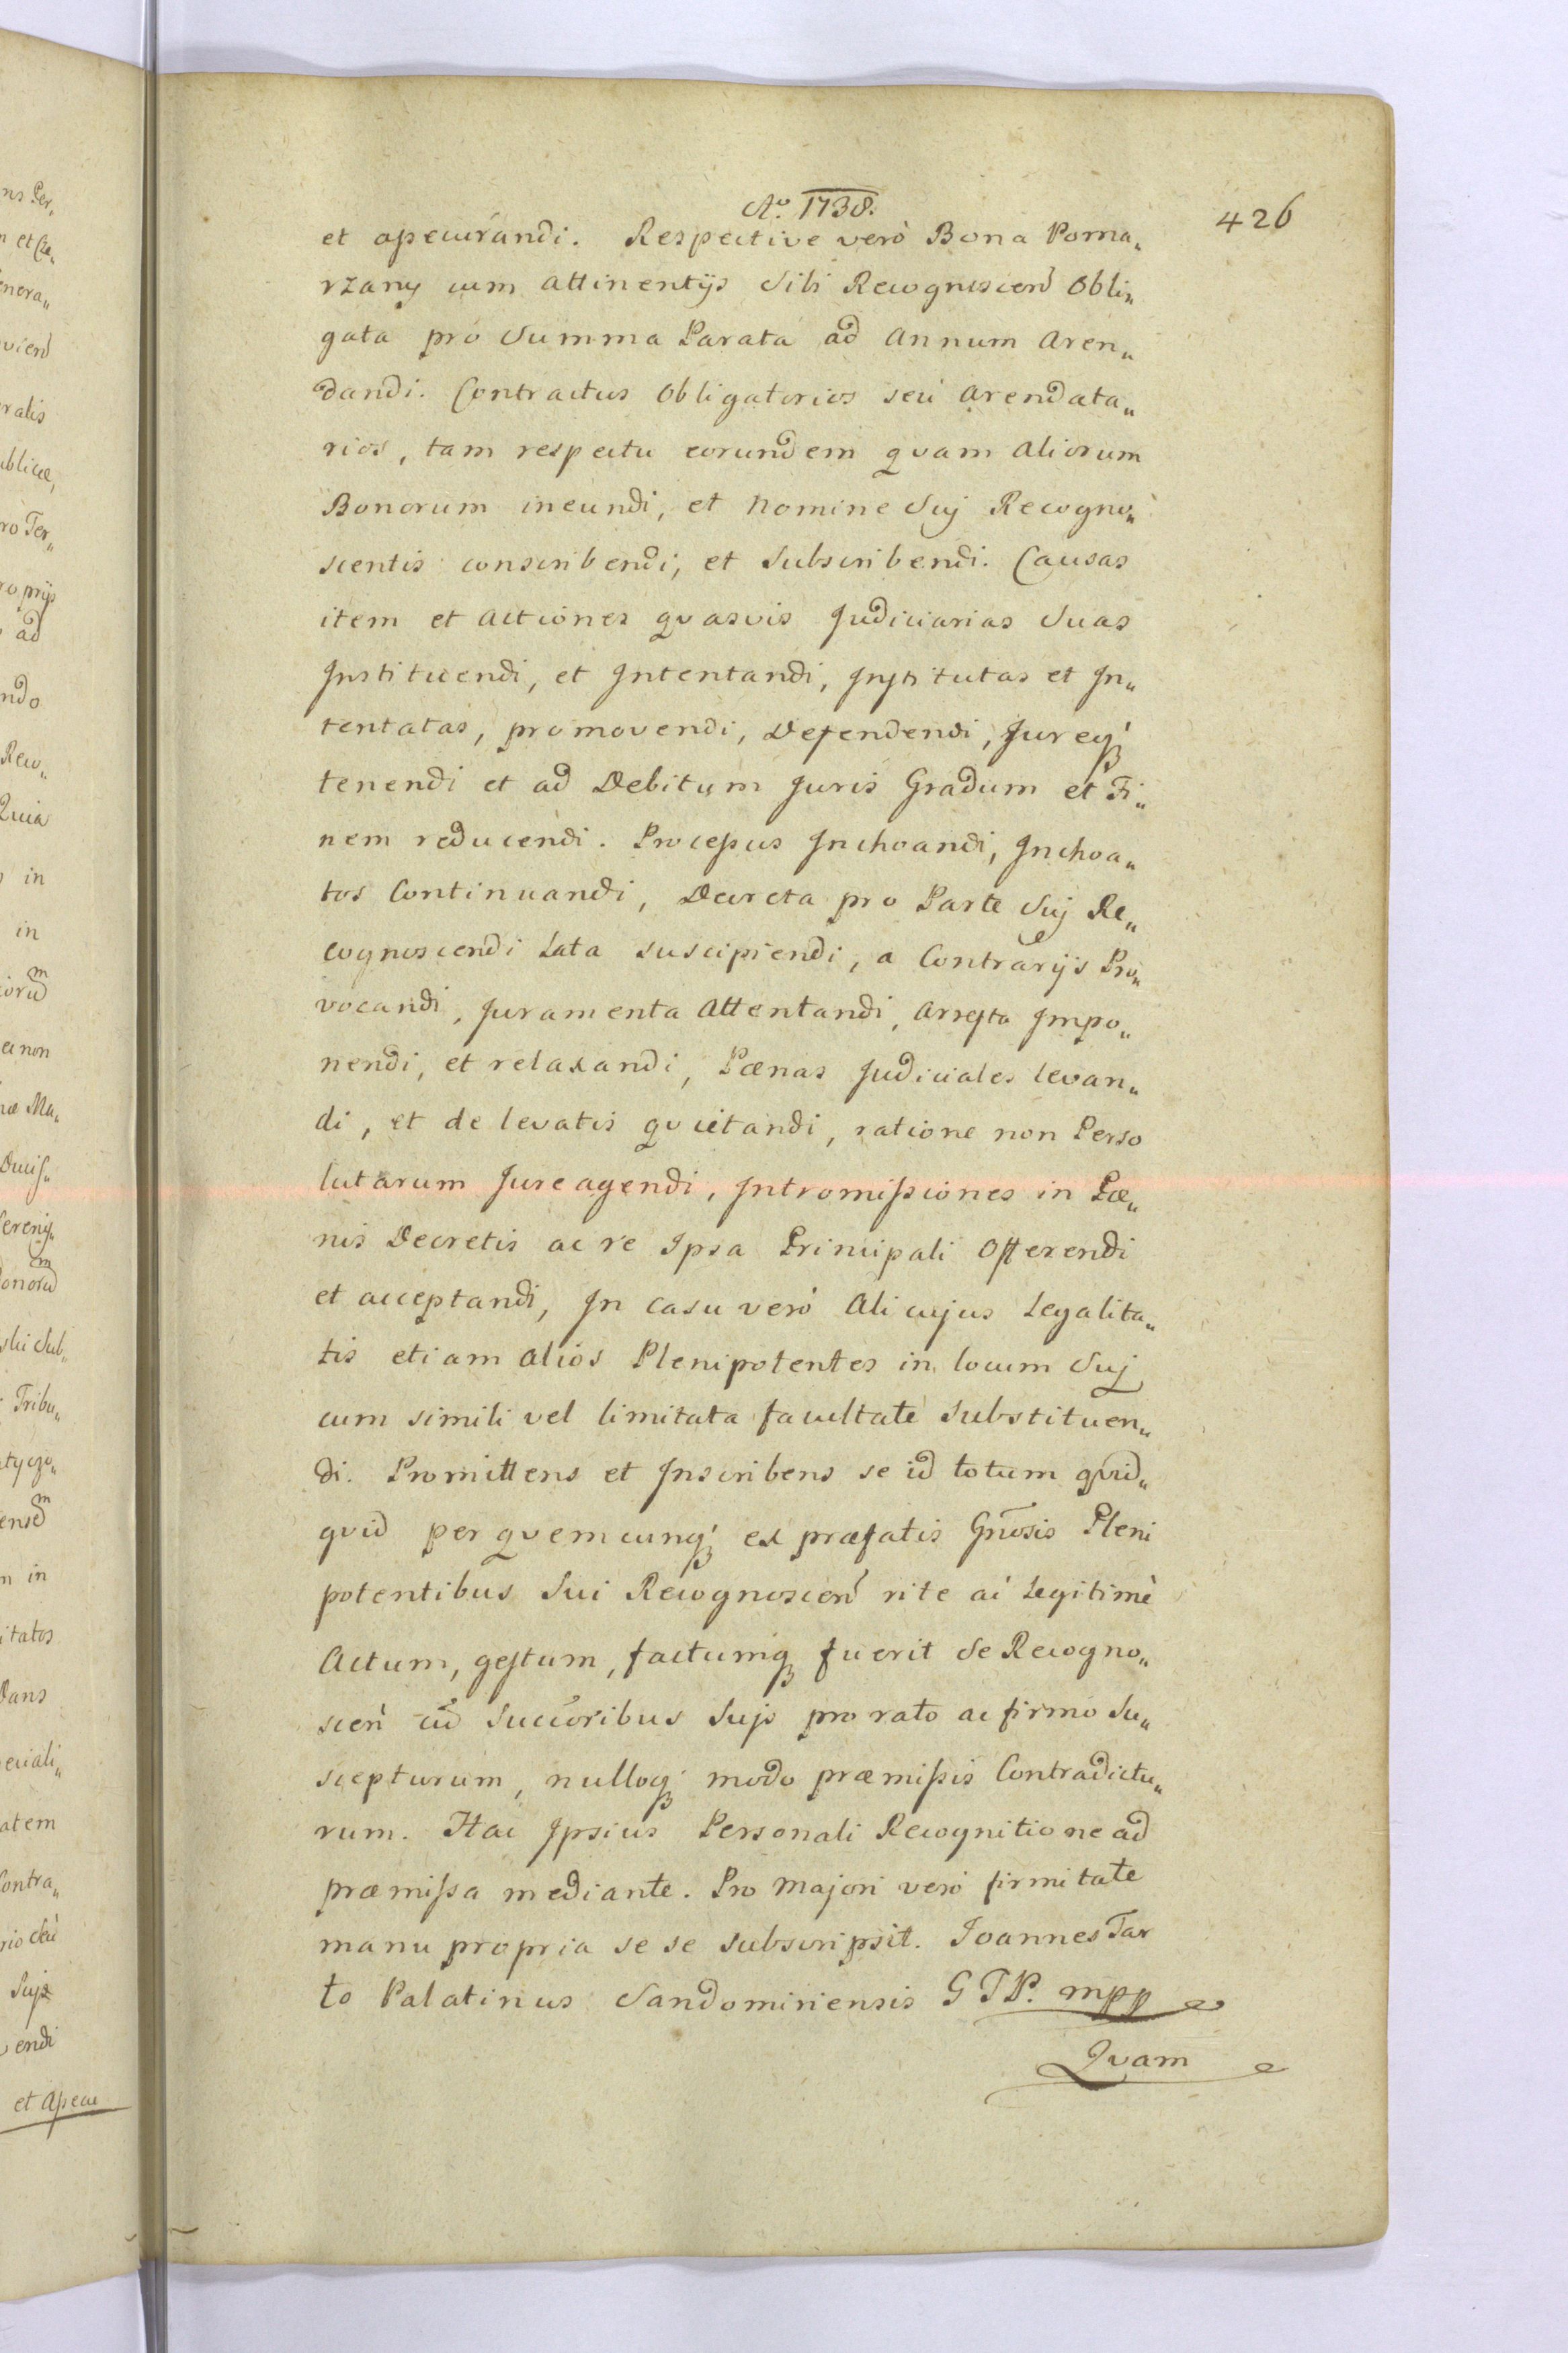 Ao. 1738.
426
et apecurandi. Respective verò Bona Poma„
rzany cum attinentijs Sibi Recognoscen Obli„
gata pro Summa Parata ad Annum Aren„
dandi. Contractus Obligatorios seu Arendata„
rios, tam respectu eorundem quam Aliorum
Bonorum ineundi, et Nomine Suj Recogno„
scentis conscribendi, et Subscribendi. Causas
item et Actiones quasvis Judiciarias Suas
Instituendi, et Intentandi, Institutas et In„
tentatas, promovendi, Defendendi, Jureq
tenendi et ad Debitum Juris Gradum et Fi„
nem reducendi. Processus Inchoandi, Inchoa„
tos Continuandi, Decreta pro Parte Suj Re„
cognoscendi Lata suscipiendi, a Contrarijs Pro„
vocandi, Juramenta Attentandi, Arresta Impo„
nendi, et relaxandi, Pœnas Judiciales levan„
di, et de levatis quietandi, ratione non Perso
lutarum Jure agendi, Intromissiones in Pœ„
nis Decretis ac re Ipsa Principali Offerendi
et acceptandi, In casu verò Alicujus Legalita„
tis etiam Alios Plenipotentes in locum Suj
cum simili vel limitata facultate Substituen„
di. Promittens et Inscribens se id totum quid„
quid per quemcunq ex præfatis Gnosis Pleni
potentibus Sui Recognoscen rite ac Legitimè
Actum, gestum, factumq fuerit Se Recogno„
scen cu Succoribus Sujs pro rato ac firmo Su„
scepturum, nulloq modo præmissis Contradictu„
rum. Hac Ipsius Personali Recognitione ad
præmissa mediante. Pro Majori verò firmitate
manu propria se se Subscripsit. Joannes Tar
to Palatinus Sandomiriensis G T P. mpp
Quam
et Apecu